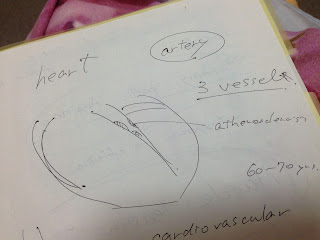 artery
heart
3 vessels
60-70 yrs.
cardiovascular